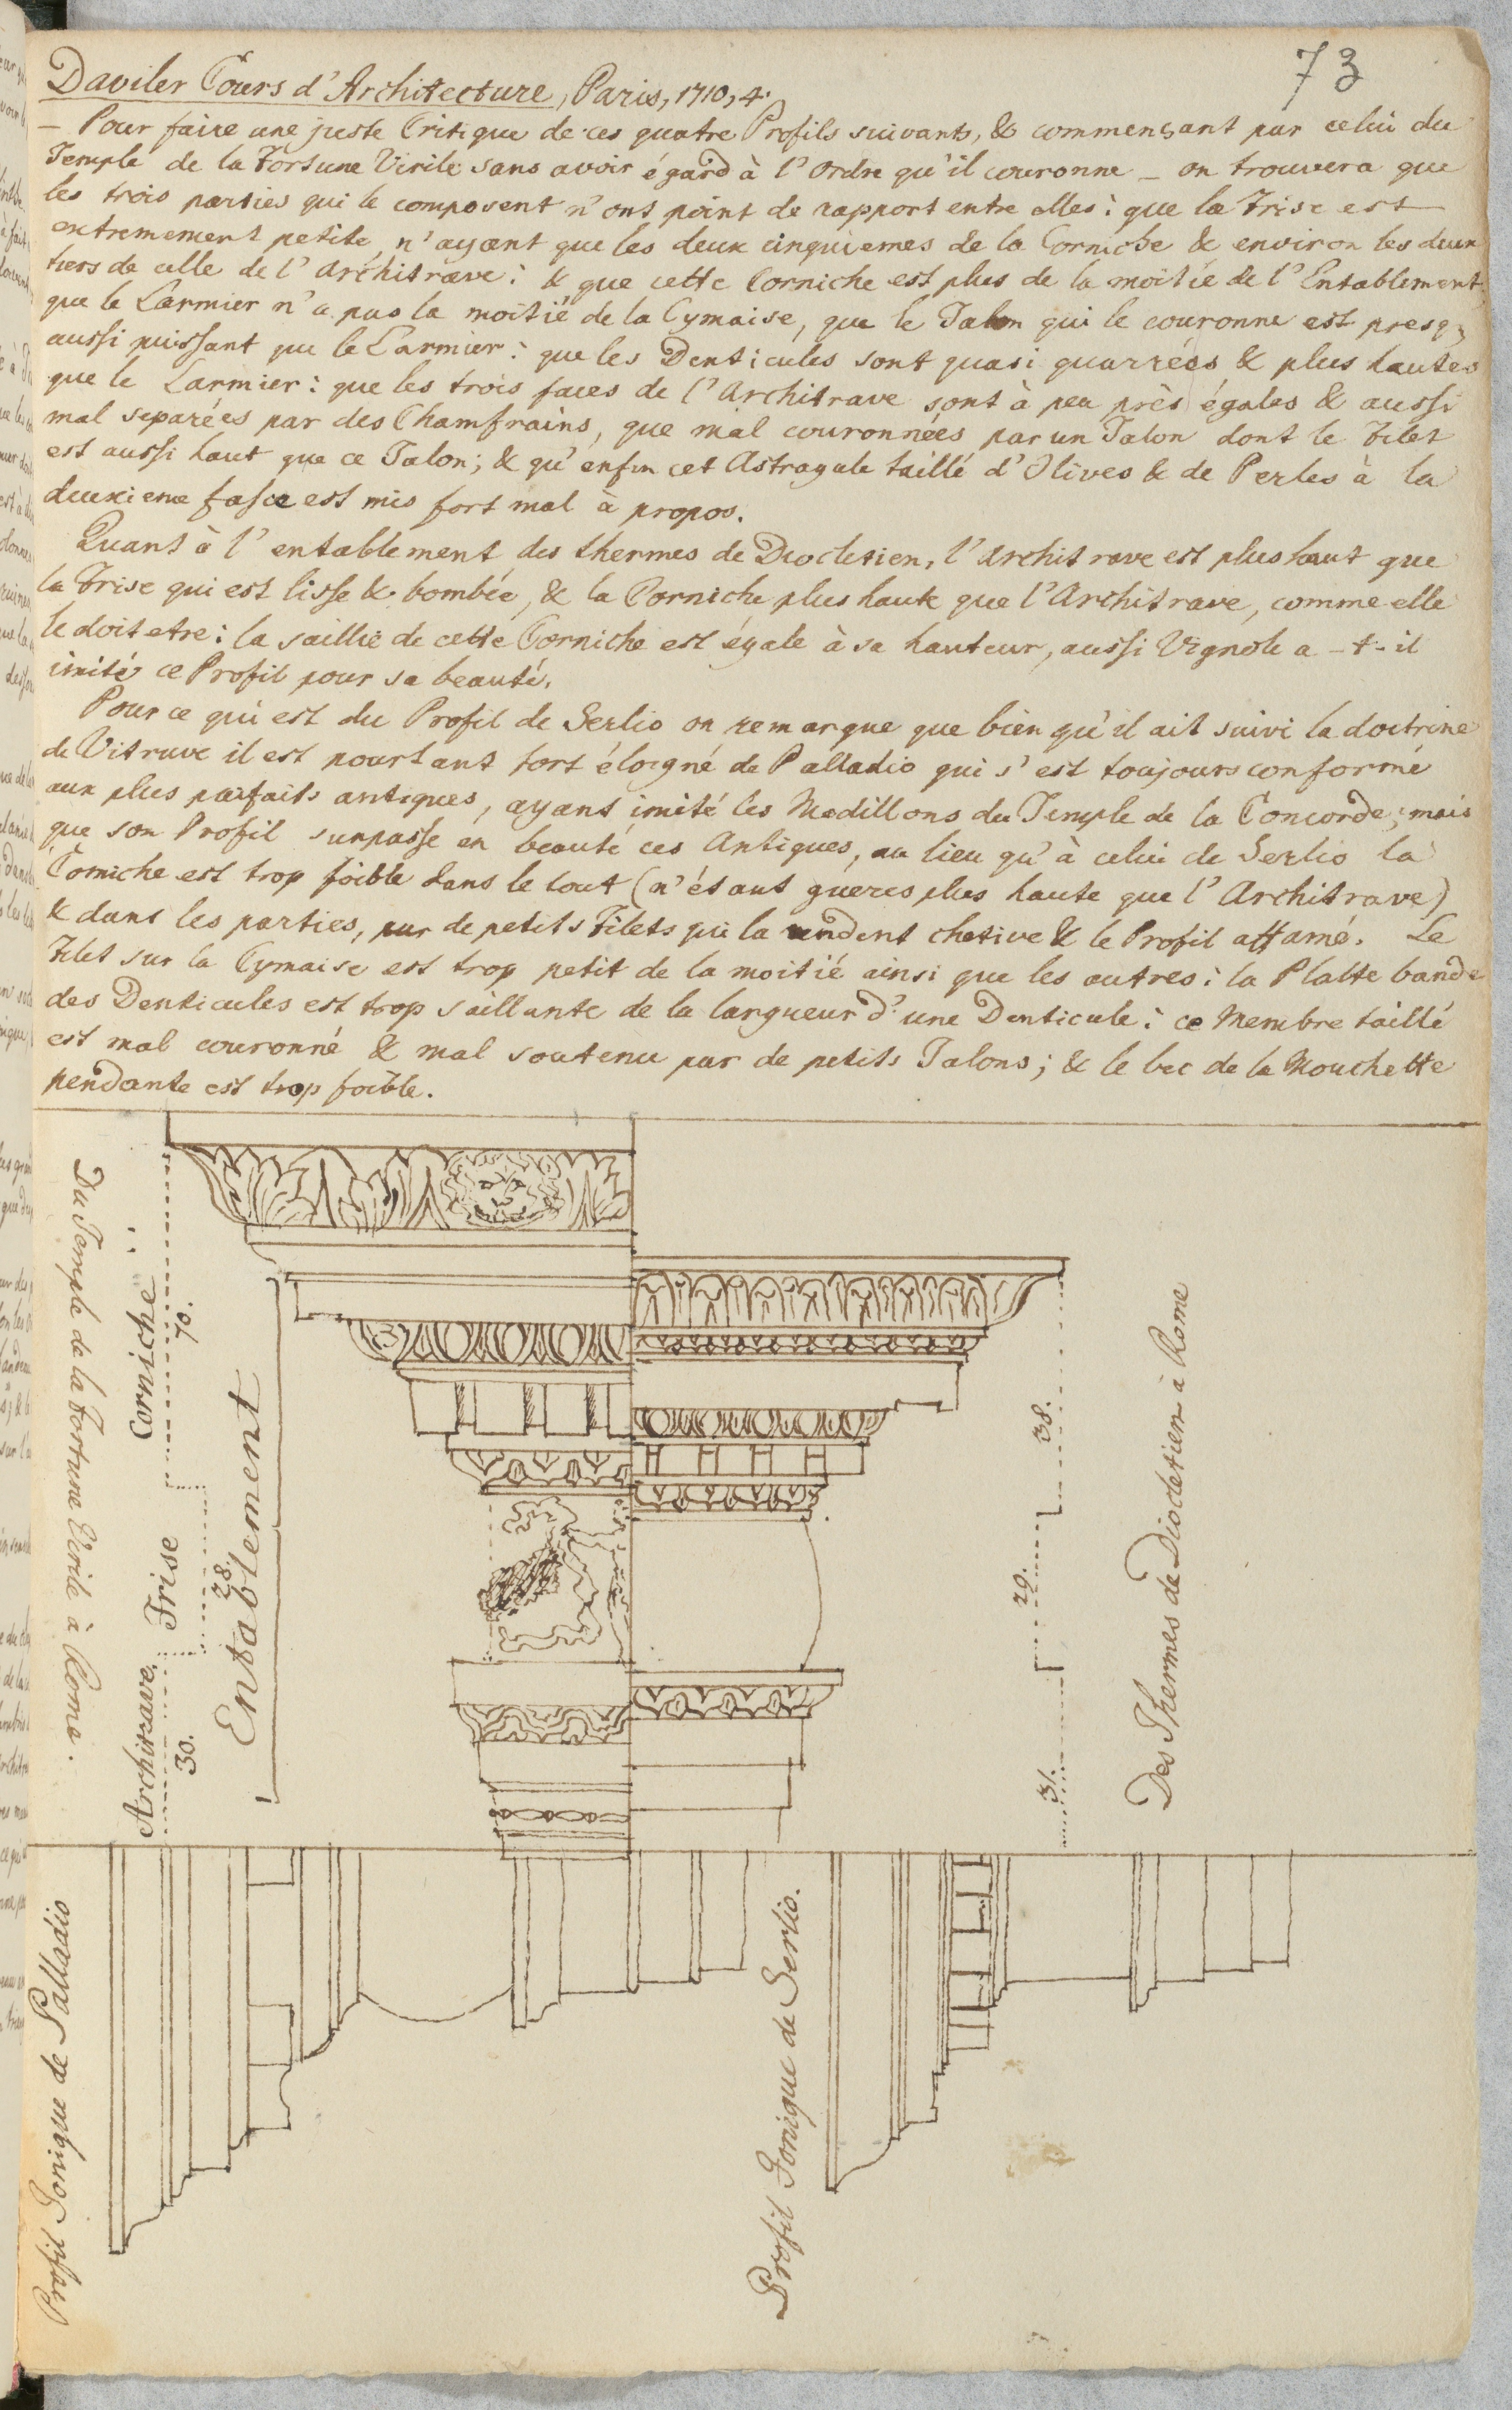 73
Daviler Cours d'Architecture, Paris, 1710, 4.
— Pour faire une juste Critique de ces quatre Profils suivants, & commençant par celui du
Temple de la Fortune Virile sans avoir égard à l'Ordre qu'il couronne – on trouvera que
les trois parties qui le composent n'ont point de rapport entre elles: que la Frise est
extremement petite, n'ayant que les deux cinquiemes de la Corniche & environ les deux
tiers de celle de l'Architrave: & que cette Corniche est plus de la moitié de l'Entablement:
que le Larmier n'a pas la moitié de la Cymaise, que le Talon qui le couronne est presq;
aussi puissant que le Larmier: que les Denticules sont quasi quarrées & plus hautes
que le Larmier: que les trois faces de l'Architrave sont à peu près égales & aussi
mal separées par des Chamfrains, que mal couronnées par un Talon dont le Filet
est aussi haut que ce Talon; & qu'enfin cet Astragale taillé d'Olives & de Perles à la
deuxieme fasce est mis fort mal à propos.
Quant à l'entablement des thermes de Diocletien, l'Architrave est plus haut que
la Frise qui est lisse & bombée, & la Corniche plus haute que l'Architrave, comme elle
le doit etre: la saillie de cette Corniche est égale à sa hauteur, aussi Vignole a-t-il
imité ce Profil pour sa beauté.
Pour ce qui est du Profil de Serlio on remarque que bien qu'il ait suivi la doctrine
de Vitruve il est pourtant fort éloigné de Palladio qui s'est toujours conformé
aux plus parfaits antiques, ayant imité les Modillons du Temple de la Concorde; mais
que son Profil surpasse en beauté ces Antiques, au lieu qu'à celui de Serlio la
Corniche est trop foible dans le tout (n'étant guères plus haute que l'Architrave)
& dans les parties, par de petits Filets qui la rendent chetive & le Profil affamé. Le
Filet sur la Cymaise est trop petit de la moitié ainsi que les autres: la Platte bande
des Denticules est trop saillante de la largueur d'une Denticule: ce Membre taillé
est mal couronné & mal soutenu par de petits Talons; & le bec de la Mouchette
pendante est trop foible.
Du Temple de la Fortune Virile à Rome.
Corniche
70.
Frise
28.
Architrave.
30.
Entablement
38.
29.
31.
Des Thermes de Diocletien à Rome
Profil Ionique de Palladio
Profil Ionique de Serlio.